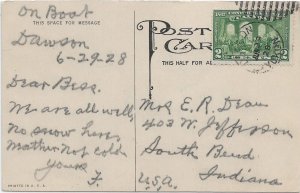 On Boat
THIS SPACE FOR MESSAGE
Dawson
6-29-28
Dear Bess.
We are all well,
No snow here,
Weather not cold
Yours
F.
PRINTED IN U.S.A.
POST
CAR
THIS HALF FOR A
2
2
Mrs E. R. Dean
403 W. Jefferson
South Bend
Indiana
U.S.A.